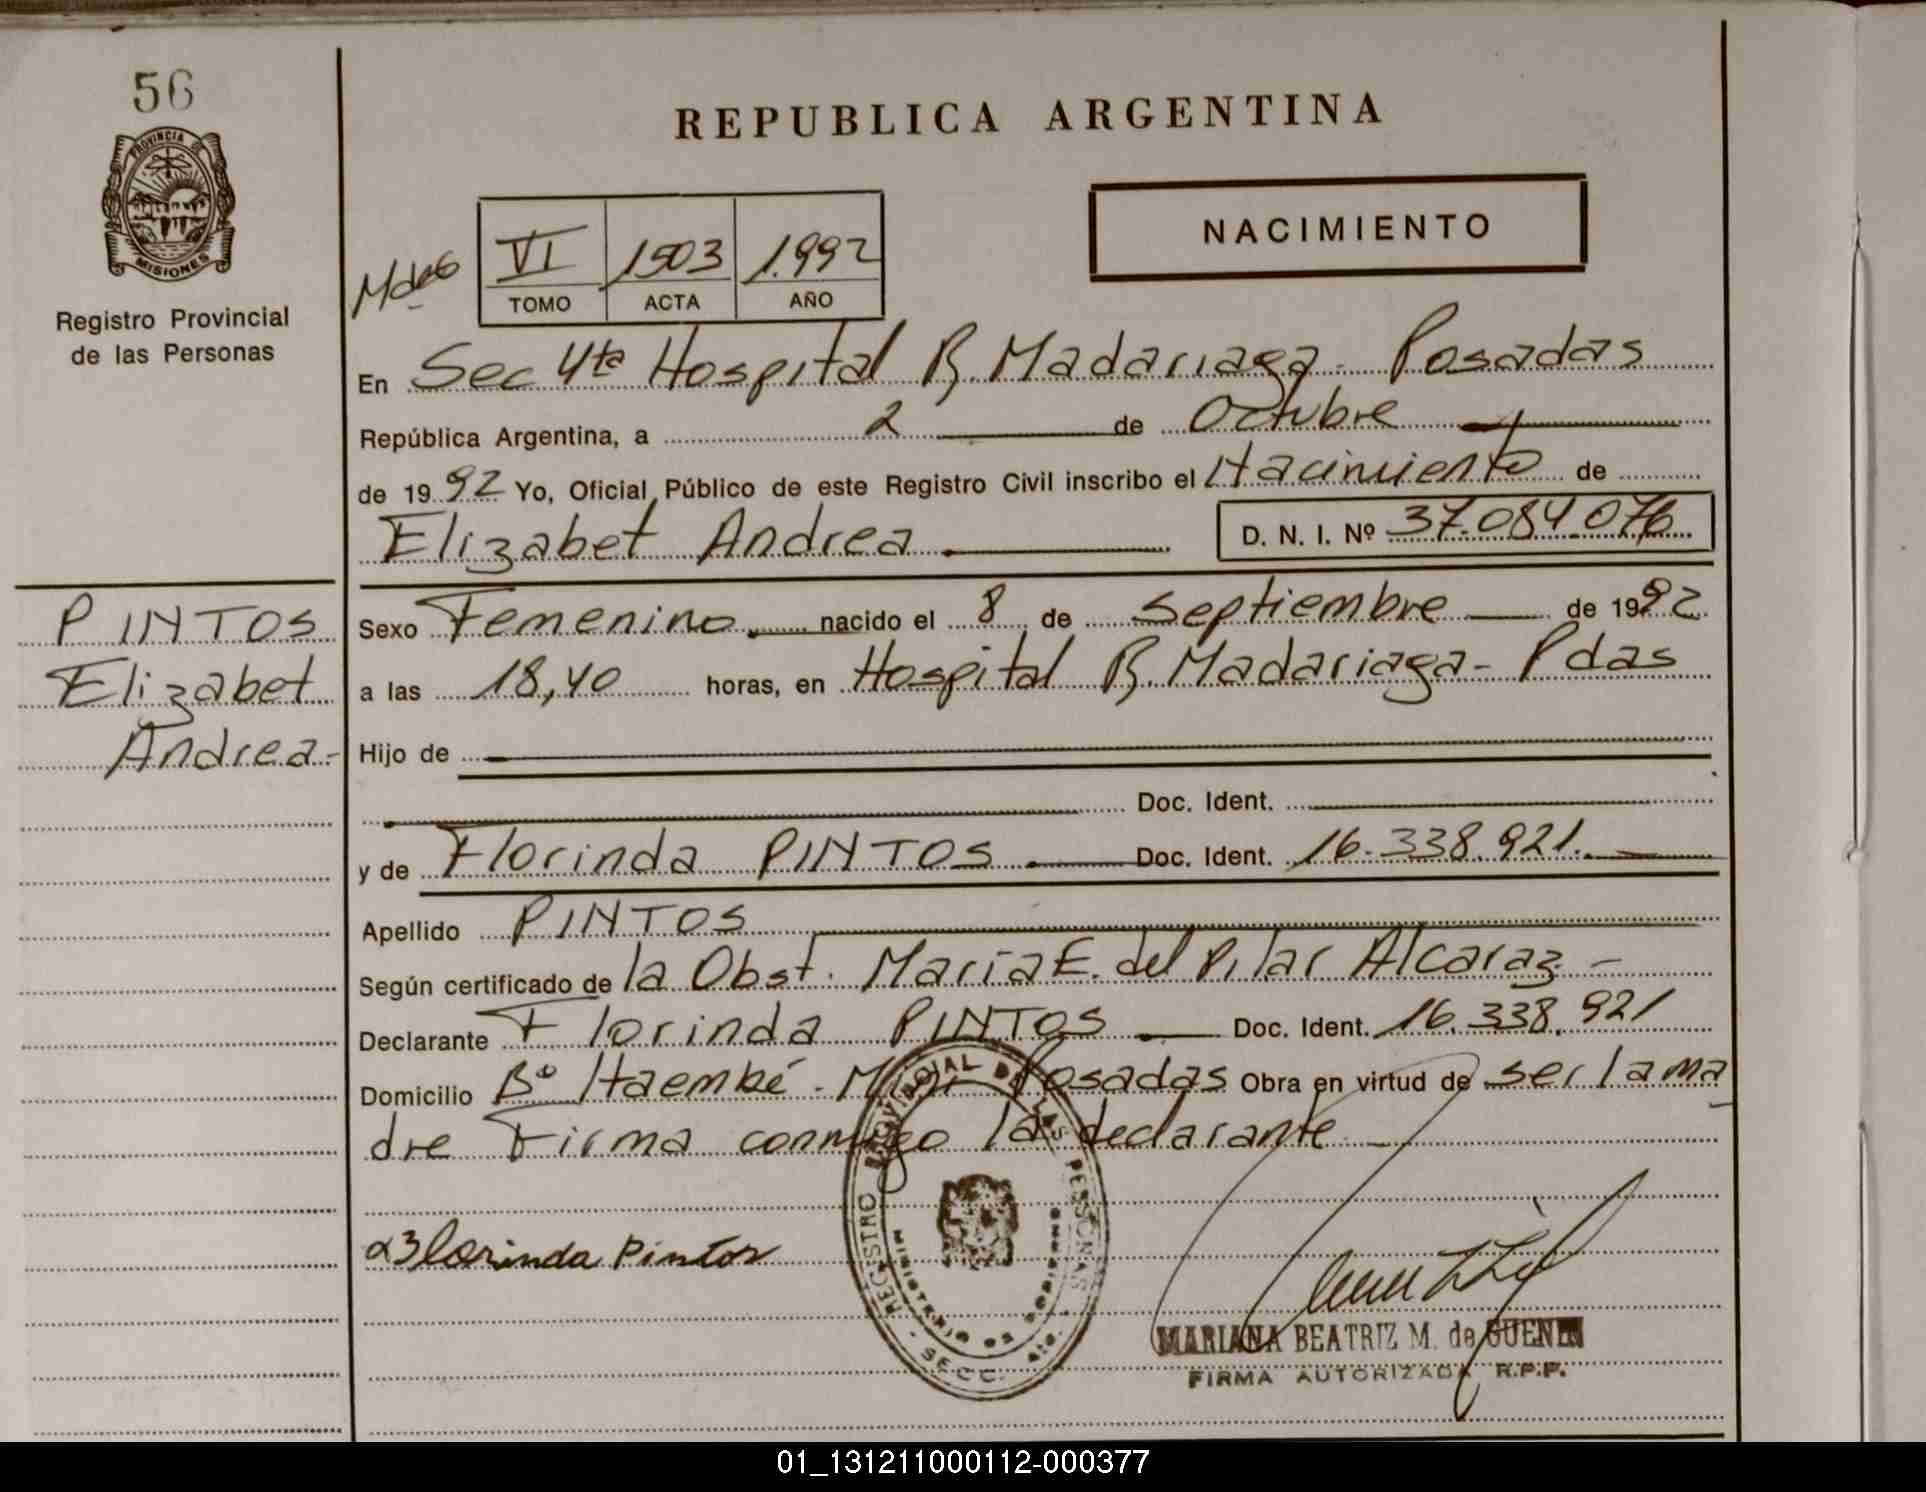 56
PROVINCIA DE
MISIONES
Registro Provincial
de las Personas
REPUBLICA ARGENTINA
NACIMIENTO
VI 1503 1.992
TOMO ACTA AÑO
En Sec 4ta Hospital R. Madariaga - Posadas
República Argentina, a 2 de Octubre
de 1992 Yo, Oficial Público de este Registro Civil inscribo el Nacimiento de
Elizabet Andrea D. N. I. Nº 37.084.076
PINTOS
Elizabet
Andrea-
Sexo Femenino. nacido el 8 de Septiembre de 1992
a las 18,40 horas, en Hospital R. Madariaga - Pdas
Hijo de
Doc. Ident.
y de Florinda PINTOS Doc. Ident. 16.338.921.
Apellido PINTOS
Según certificado de la Obst. María E. del Pilar Alcaraz -
Declarante Florinda PINTOS Doc. Ident. 16.338.921
Domicilio Bº Itaembé - Miní Posadas Obra en virtud de ser la ma
dre Firma conmigo la declarante
Florinda Pintos
REGISTRO PROVINCIAL DE LAS PERSONAS
MINISTERIO DE GOBIERNO
SECC.
MARIANA BEATRIZ M. de GUENIN
FIRMA AUTORIZADA R.P.P.
01_131211000112-000377